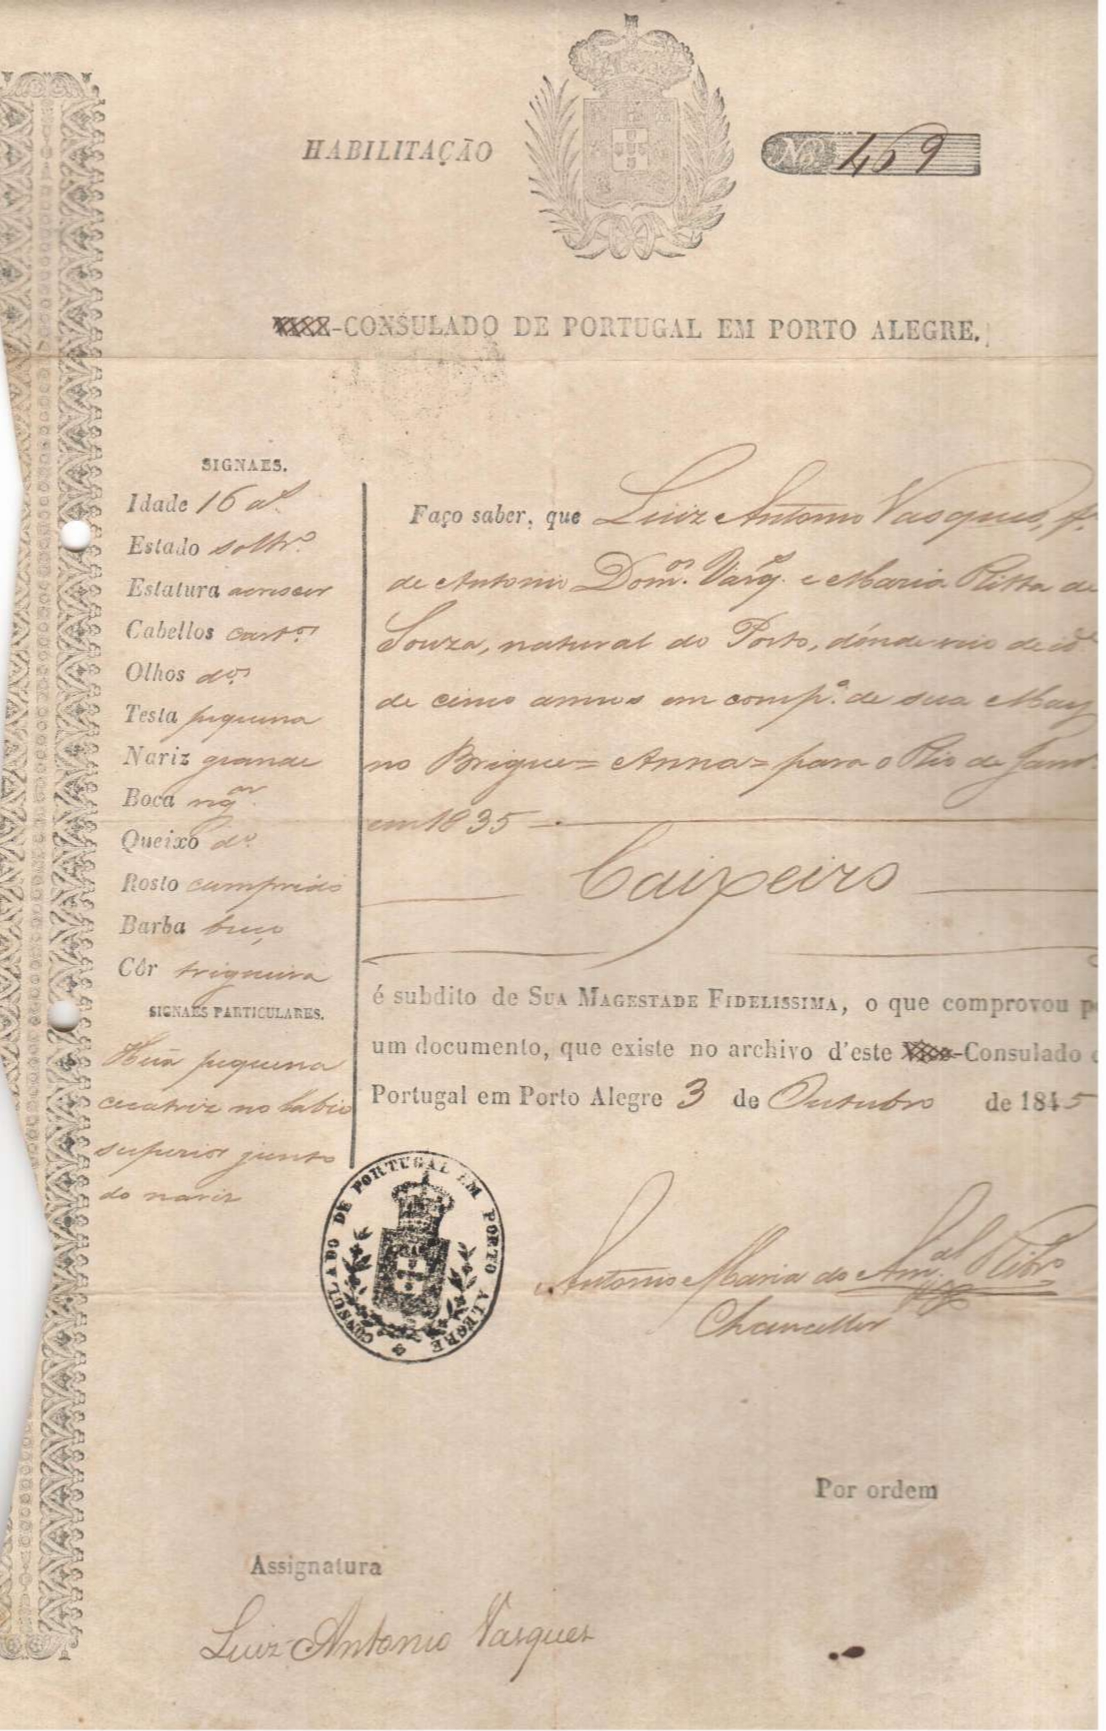 HABILITAÇÃO
No. 469
-CONSULADO DE PORTUGAL EM PORTO ALEGRE.
SIGNAES.
Idade 16 as.
Estado soltro.
Estatura a crescer
Cabellos castos
Olhos dos.
Testa pequena
Nariz grande
Boca regar.
Queixo do.
Rosto comprido
Barba buço
Côr trigueira
SIGNAES PARTICULARES.
Hũa pequena
cicatriz no labio
superior junto
do nariz
Faço saber, que Luiz Antonio Vasques, fo.
de Antonio Domos. Vasqs. e Maria Ritta de
Souza, natural do Porto, dónde veio de ide
de cinco annos em compa. de sua May
no Brigue = Anna = para o Rio de Janro.
em 1835
Caixeiro
é subdito de SUA MAGESTADE FIDELISSIMA, o que comprovou p
um documento, que existe no archivo d'este Vice-Consulado
Portugal em Porto Alegre 3 de Outubro de 1845
CONSULADO DE PORTUGAL EM PORTO ALEGRE
Antonio Maria do Amal Ribro
Chanceller
Por ordem
Assignatura
Luiz Antonio Vasques